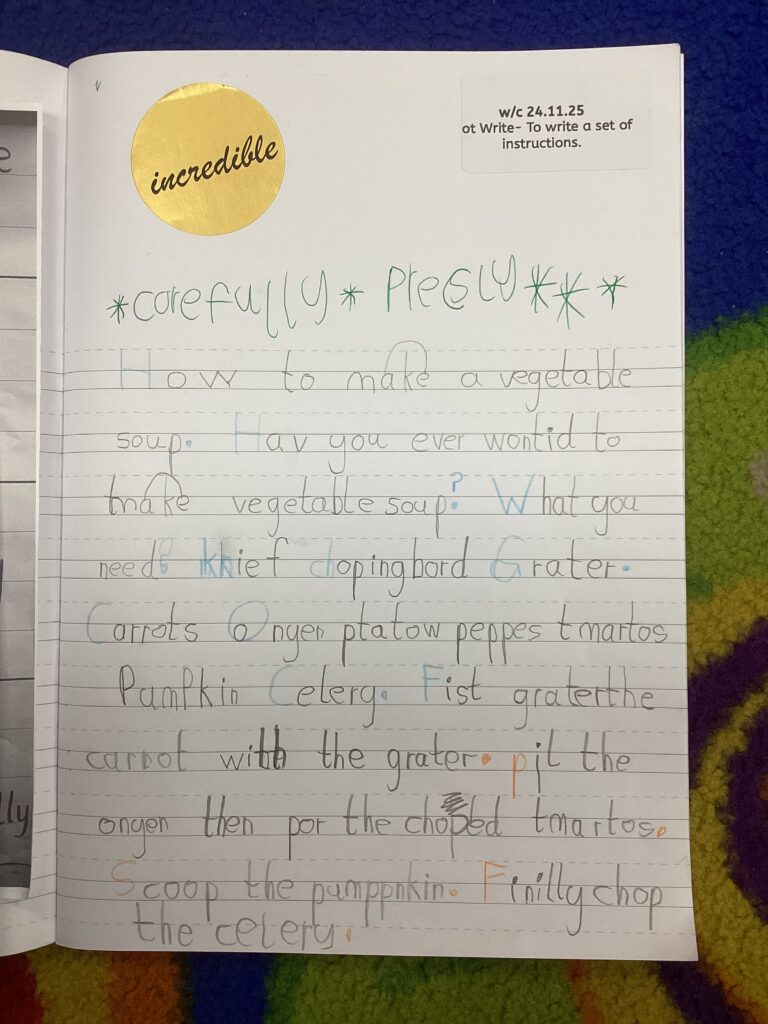 incredible
w/c 24.11.25
ot Write- To write a set of
instructions.
*carefully* Plesly***
How to make a vegetable
soup. Hav you ever wontid to
make vegetable soup? What you
need: khief chopingbord Grater.
Carrots Ongen ptatow peppes tmartos
Pumpkin Celery. Fist graterthe
carrot with the grater. pil the
ongen then por the chopped tmartos.
Scoop the pumppnkin. Finilly chop
the celery.
lly